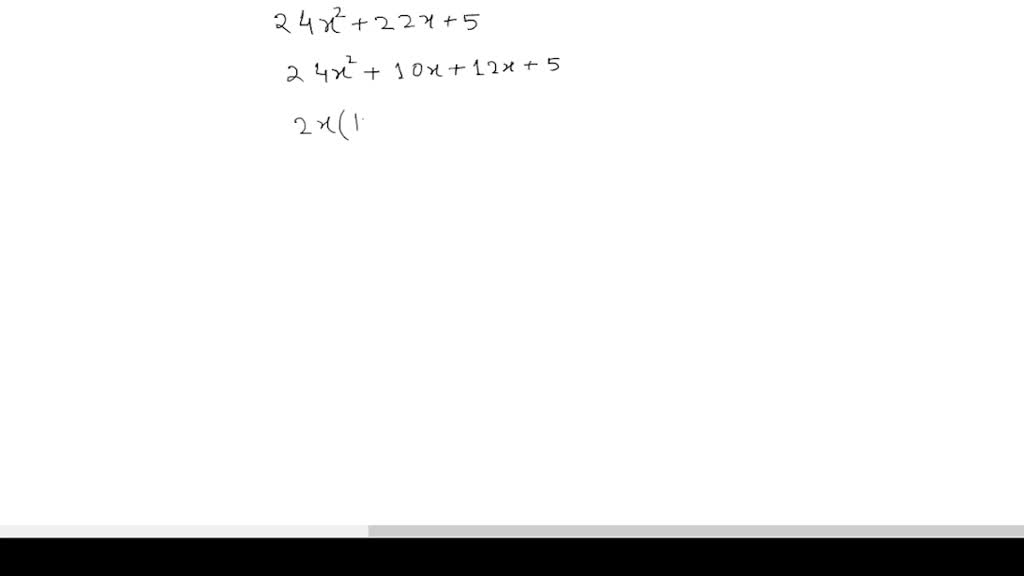 24x²+22x+5
24x²+10x+12x+5
2x(1